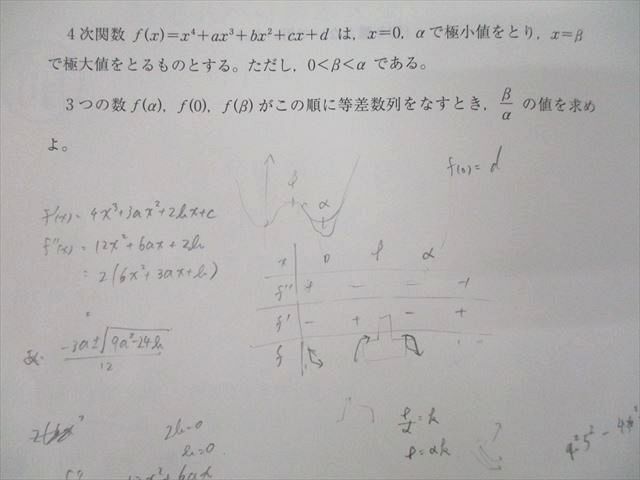 4次関数 f(x)=x⁴+ax³+bx²+cx+d は，x=0，αで極小値をとり，x=β
で極大値をとるものとする。ただし，0<β<α である。
3つの数 f(α)，f(0)，f(β) がこの順に等差数列をなすとき，β/α の値を求め
よ。
f(0) = d
f'(x) = 4x³+3ax²+2bx+c
f''(x) = 12x²+6ax+2b
= 2(6x²+3ax+b)
x 0 β α
f'' + − − +
f' − + − +
f
−3a±√9a²−24b
12
2b=0
b=0
β/α = k
β = αk
12x²+6ax